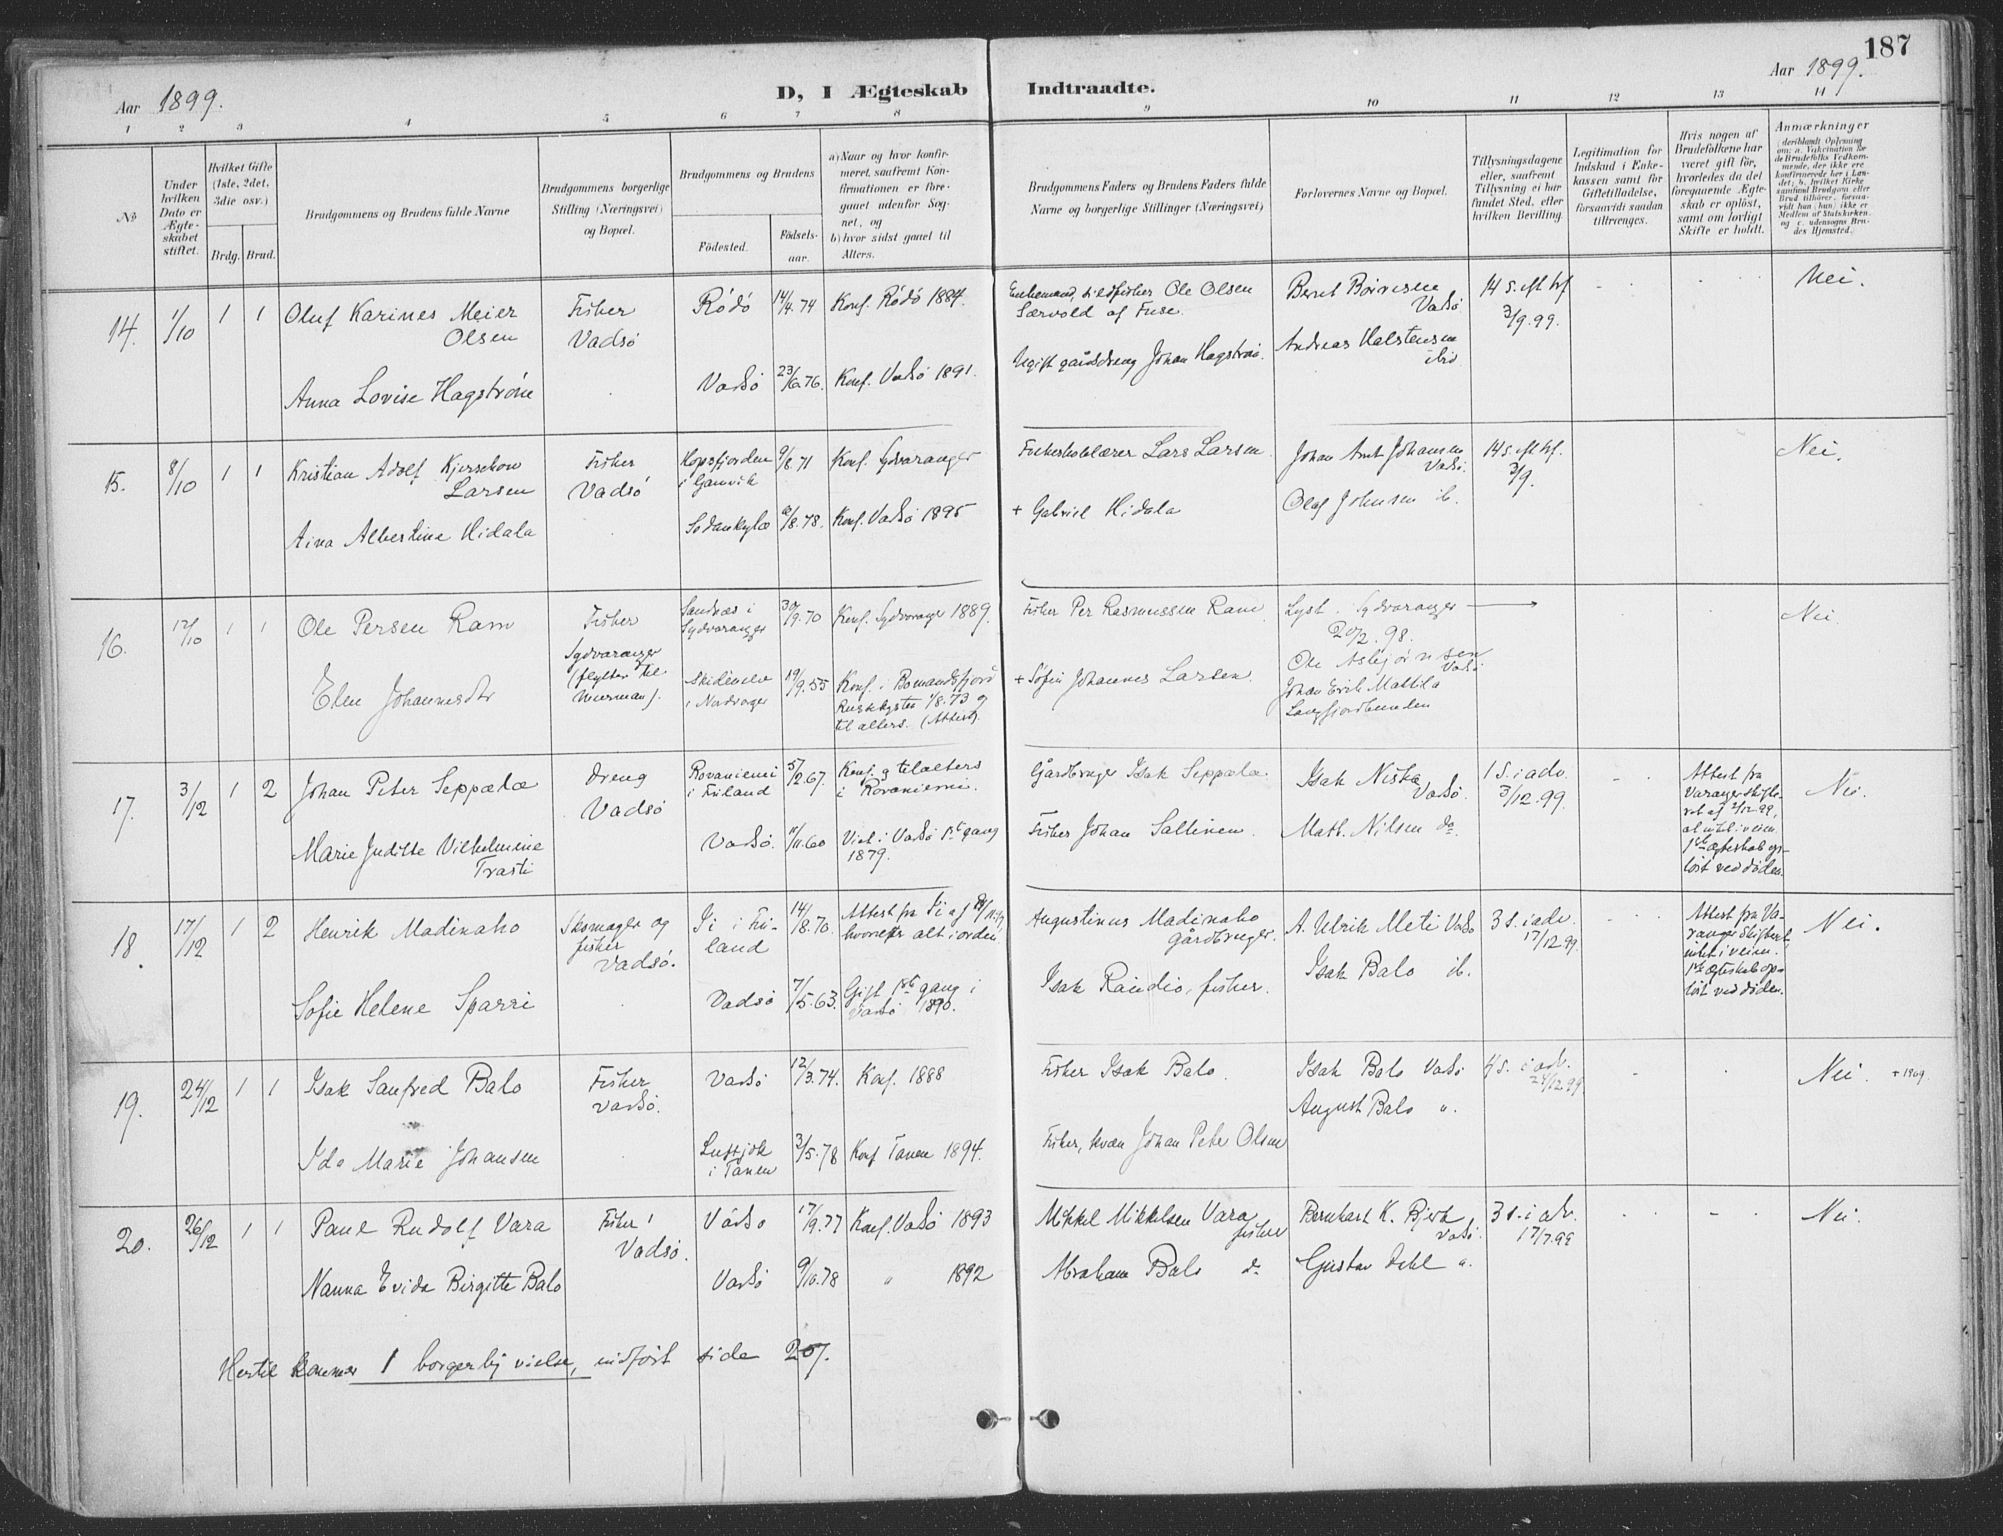 187
Aar 1899.
D, I Ægteskab Indtraadte.
Aar 1899.
1 2 3 4 5 6 7 8 9 10 11 12 13 14
No
Under hvilken Dato er Ægteskabet stiftet.
Hvilket Gifte (1ste, 2det, 3die osv.)
Brdg. Brud.
Brudgommens og Brudens fulde Navne
Brudgommens borgerlige Stilling (Næringsvei) og Bopæl.
Brudgommens og Brudens
Födested. Födsels-aar.
a) Naar og hvor konfirmeret, saafremt Konfirmationen er foregaaet udenfor Sognet, og
b) hvor sidst gaaet til Alters.
Brudgommens Faders og Brudens Faders fulde Navne og borgerlige Stillinger (Næringsvei)
Forlovernes Navne og Bopæl.
Tillysningsdagene eller, saafremt Tillysning ei har fundet Sted, efter hvilken Bevilling.
Legitimation for Indskud i Enkekassen samt for Giftetilladelse, forsaavidt saadan tiltrænges.
Hvis nogen af Brudefolkene har været gift för, hvorledes da det foregaaende Ægteskab er oplöst, samt om lovligt Skifte er holdt.
Anmærkninger
(deriblandt Oplysning om: a. Vakcination for de Brudefolks Vedkommende, der ikke ere konfirmerede her i Landet; b. hvilket Kirkesamfund Brudgom eller Brud tilhörer, forsaavidt han (hun) ikke er Medlem af Statskirken, og c. udensogns Brudes Hjemsted.
14. 1/10 1 1 Oluf Karines Meier Olsen
Fisker Vadsö
Rödö 14/4.74 Konf. Rödö 1884.
Enkemand, sildfisker Ole Olsen Særvold af Fuse.
Bernt Börresen Vadsö
14 s. eft. trf 3/9.99.
Nei.
Anna Lovise Hagström
Vadsö 23/6.76. Konf. Vadsö 1891.
Ugift gårdsdreng Johan Hagström.
Andreas Halstensen ibid
15. 8/10 1 1 Kristian Adolf Kjerschow Larsen
Fisker Vadsö
Hopsfjorden i Gamvik 9/8 71 Konf. Sydvaranger
Lars Larsen.
Johan Arnt Johansen Vadsö.
14 s. eft. trf. 3/9.
Nei.
Aina Albertine Hidala
Sodankylæ /8.78. Konf. Vadsö 1895
+ Gabriel Hidala
Olaf Johnsen ib.
16. 12/10 1 1 Ole Persen Ram
Fisker Sydvaranger (flytter til Murman).
Sandnæs i Sydvaranger 30/9.70 Konf. Sydvaranger 1889.
Fisker Per Rasmussen Ram
Lyst. Sydvaranger 20/2.98.
Ole Asbjörnsen Vadsö
Nei.
Elen Johannesdtr
Skidenelv i Nordvarger 19/9.55 Konf. i Bomandsfjord Russkysten 1/8.73 og til alters. (Attest).
+ Söfin Johannes Larsen.
Johan Erik Mattila Langfjordbunden
17. 3/12 1 2 Johan Peter Seppælæ
Dreng Vadsö
Rovaniemi i Finland 5/2.67. Konf. og til alters i Rovaniemi.
Gårdbruger Isak Seppælæ.
Isak Niska Vadsö.
1 s. i adv. 3/12.99.
Attest fra Varanger skifteret af 2/12 99, at intet i veien. 1ste ægteskab opløst ved döden.
Nei.
Marie Juditte Vilhelmine Trasti
Vadsö. 11/11.60 Viet i Vadsö 1ste gang 1879.
Fisker Johan Saltinen.
Math. Nilsen do.
18. 17/12 1 2 Henrik Madinaho
Skomager og fisker Vadsö.
Ii i Finland 14/8.70. Attest fra Ii af /11.99, hvorefter alt i orden
Augustinus Madinaho gårdbruger.
A. Ulrik Meti Vadsö
3 s. i adv. 17/12 99.
Attest fra Varanger Skifteret, intet i veien. 1ste ægteskab opløst ved döden.
Nei.
Sofie Helene Sparri
Vadsö 7/5.63. Gift 1ste gang i Vadsö 1890.
Isak Raudio, fisker.
Isak Balo ib.
19. 24/12 1 1 Isak Sanfred Balo
Fisker Vadsö.
Vadsö 12/3.74. Konf. 1888
Fisker Isak Balo.
Isak Balo Vadsö
4 s. i adv. 24/12 99.
Nei. + 1909.
Ida Marie Johansen
Luftjok i Tanen 3/5.78 Konf Tanen 1894.
Fisker, kvæn Johan Peter Olsen
August Balo "
20. 26/12 1 1 Paul Rudolf Vara
Fisker Vadsö.
Vadsö 17/9.77 Konf. Vadsö 1893
Mikkel Mikkelsen Vara fisker
Bernhart K. Bjerk Vadsö.
3 s. i adv. 17/7.99
Nei.
Nanna Evida Birgitte Balo
Vadsö 9/10.78 " 1892
Abraham Balo do
Gustav Dahl "
Hertil kommer 1 borgerlig vielse, indført side 207.